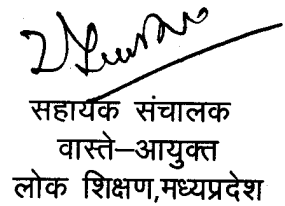 सहायक संचालक
वास्ते–आयुक्त
लोक शिक्षण,मध्यप्रदेश